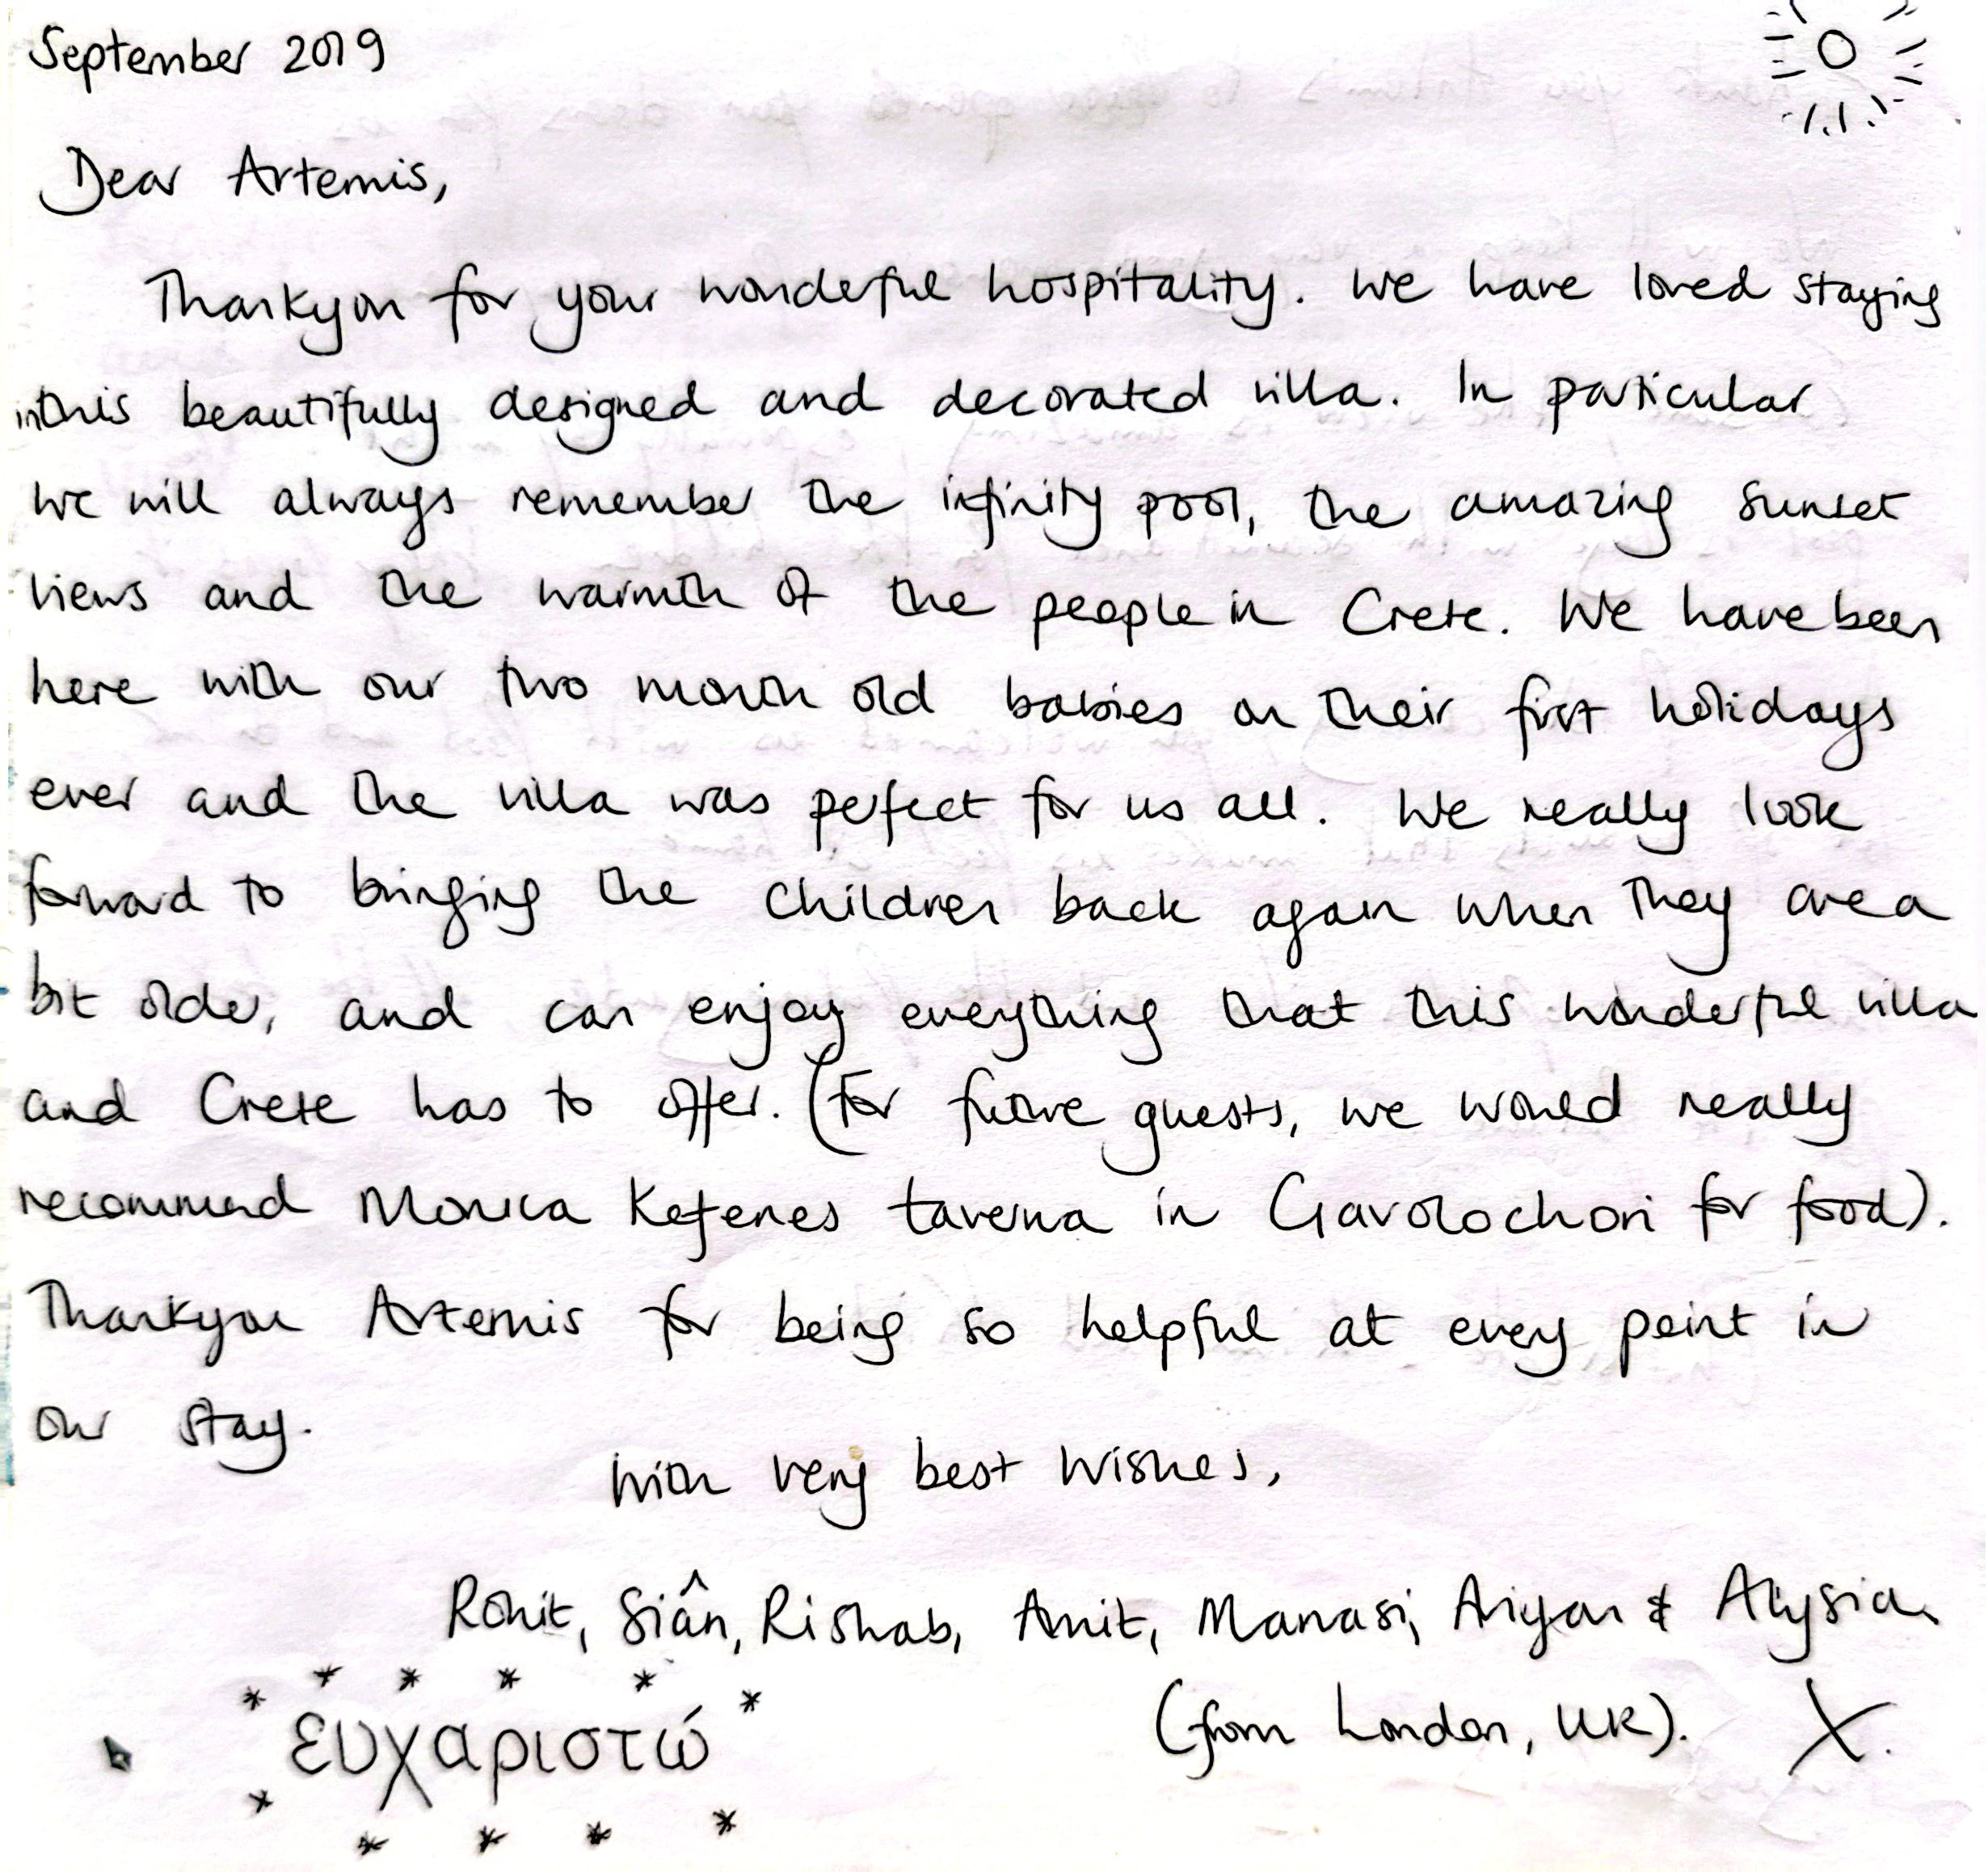 September 2019
Dear Artemis,
Thankyou for your wonderful hospitality. We have loved staying
in this beautifully designed and decorated villa. In particular
we will always remember the infinity pool, the amazing sunset
views and the warmth of the people in Crete. We have been
here with our two month old babies on their first holidays
ever and the villa was perfect for us all. We really look
forward to bringing the children back again when they are a
bit older, and can enjoy everything that this wonderful villa
and Crete has to offer. (For future guests, we would really
recommend Monica Kefenes taverna in Gavolochori for food).
Thankyou Artemis for being so helpful at every point in
our stay.
With very best wishes,
Rohit, Siân, Rishab, Amit, Manasi, Ariyan & Alysia
(from London, UK). X.
ευχαριστώ